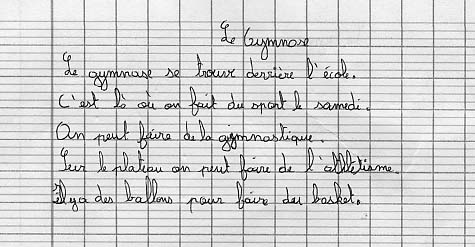 Le Gymnase
Le gymnase se trouve derrière l'école.
C'est là où on fait du sport le samedi.
On peut faire de la gymnastique.
Sur le plateau on peut faire de l'athlétisme.
Il y a des ballons pour faire du basket.